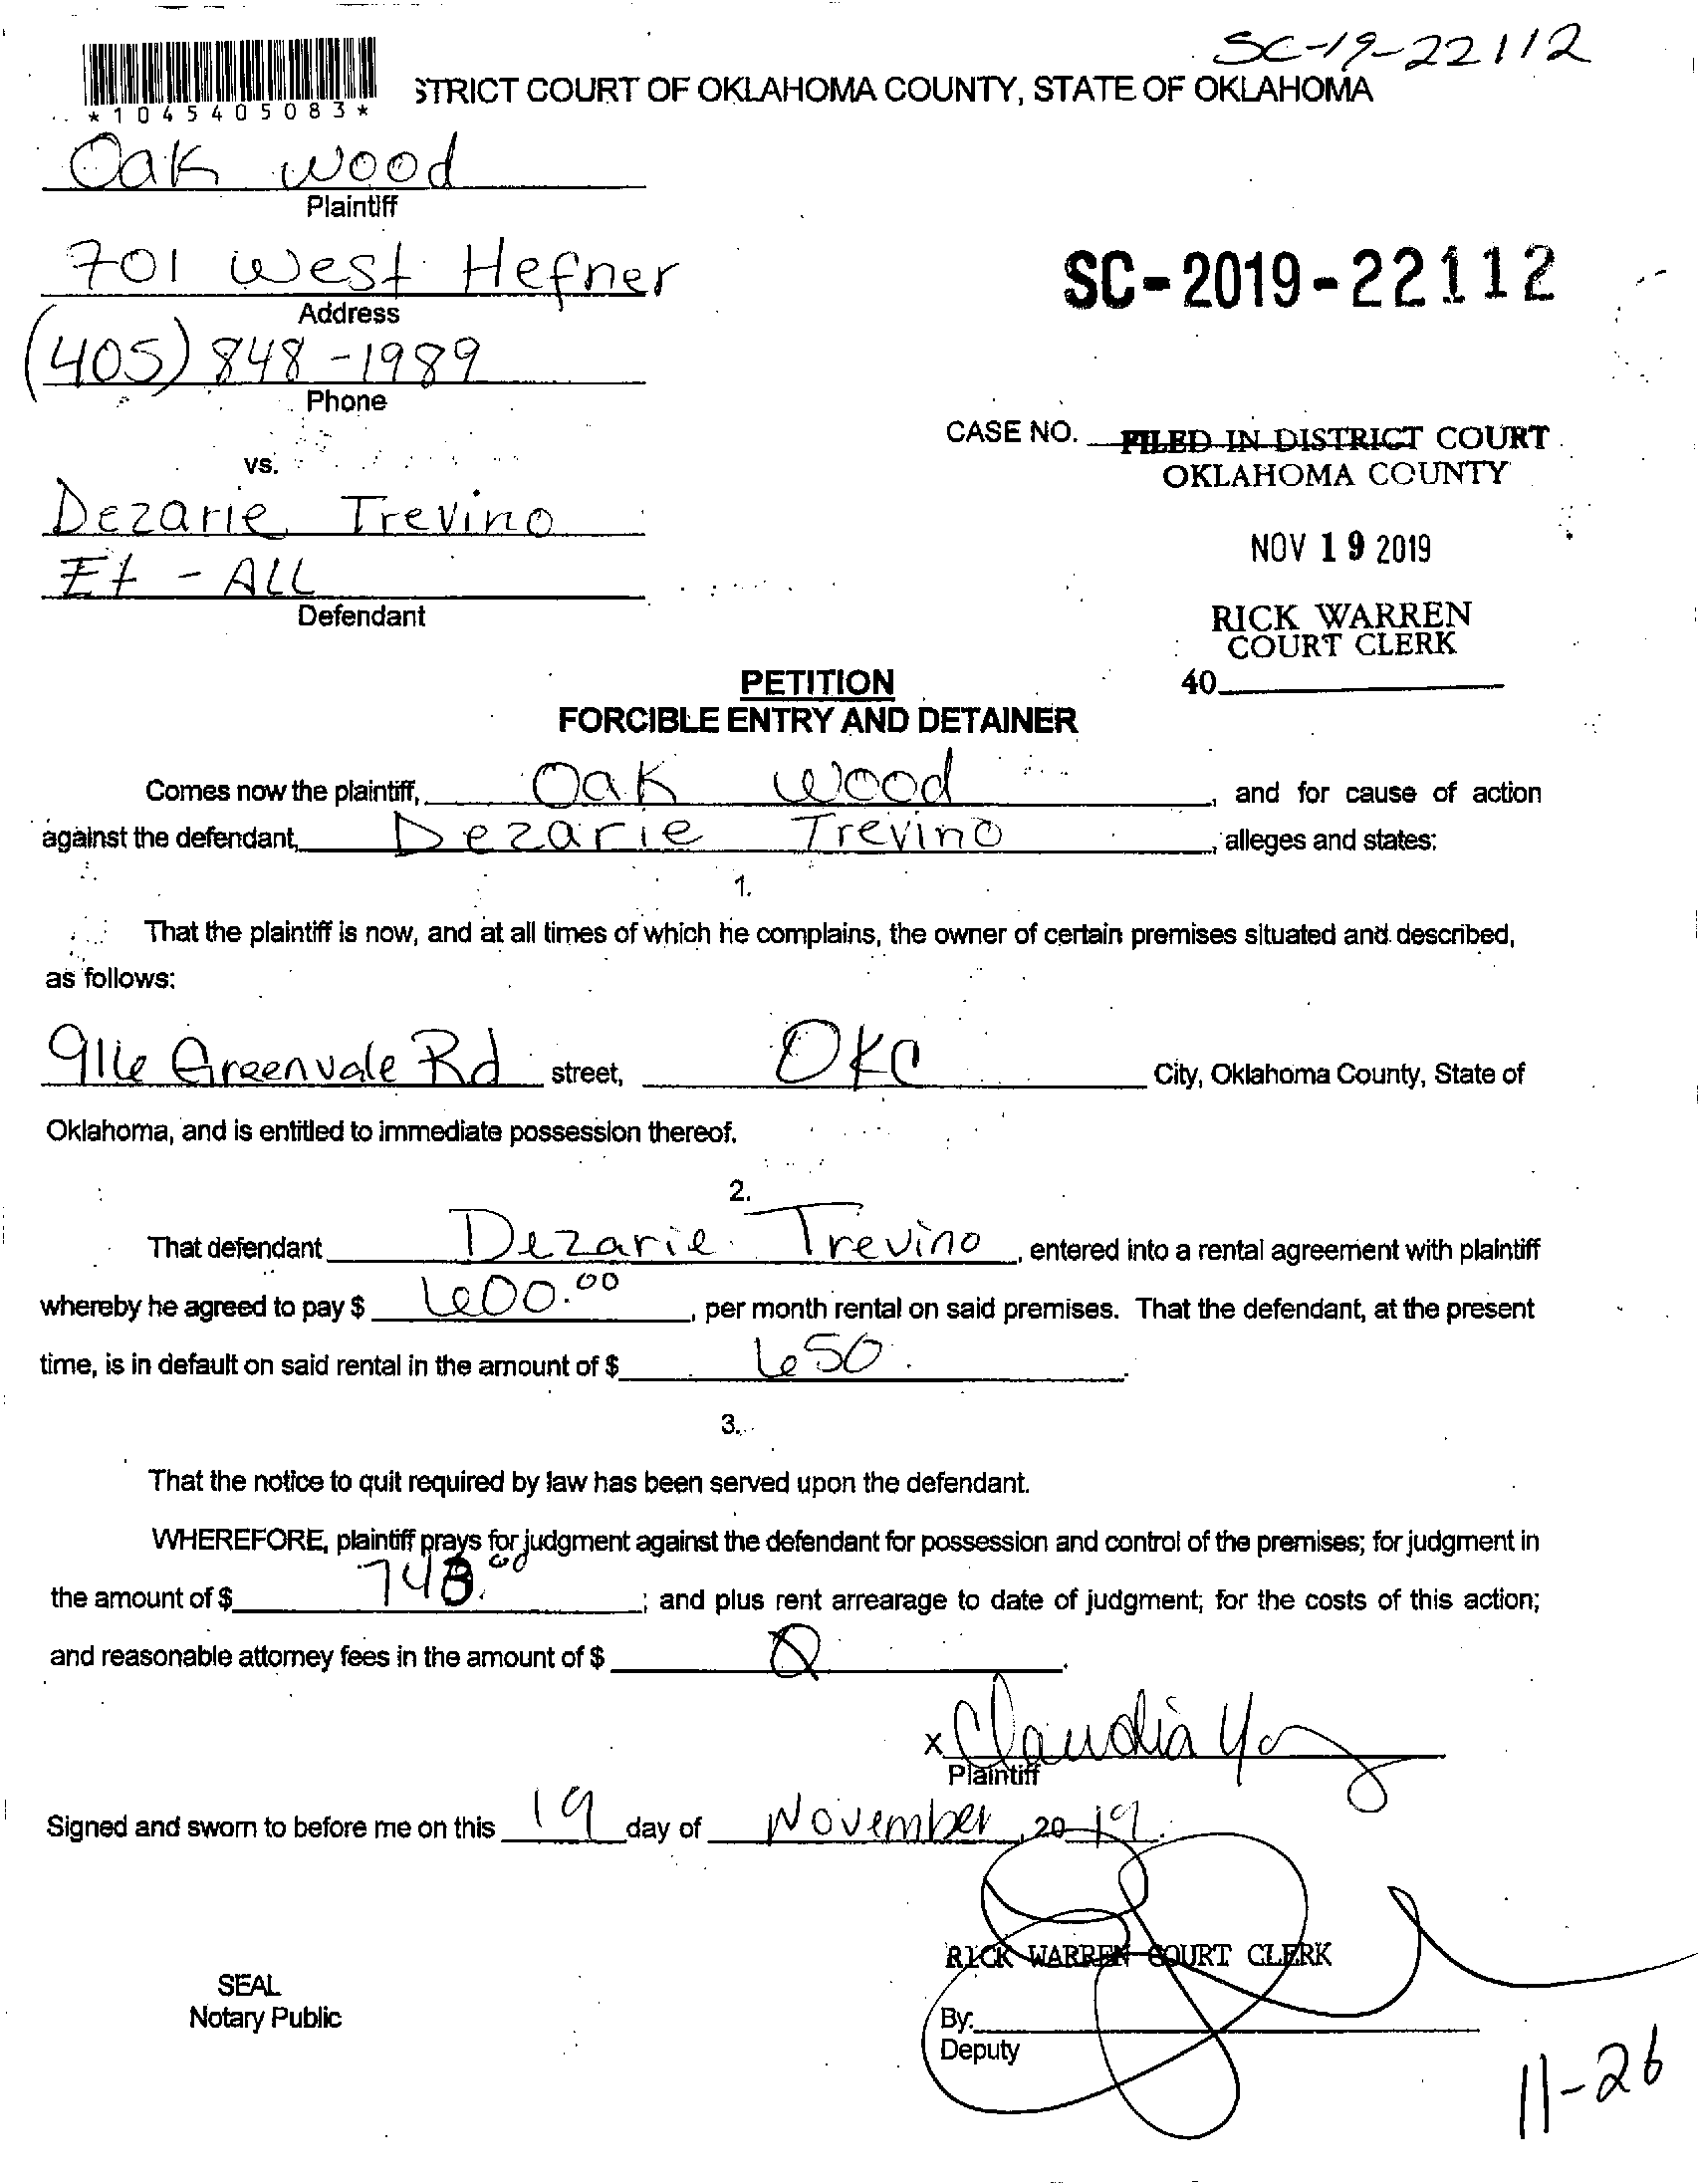 SC-19-22112
STRICT COURT OF OKLAHOMA COUNTY, STATE OF OKLAHOMA
*1045405083*
Oak wood
Plaintiff
701 west Hefner
Address
SC-2019-22112
(405) 848-1989
Phone
CASE NO. FILED IN DISTRICT COURT
OKLAHOMA COUNTY
vs.
Dezarie Trevino
NOV 19 2019
Et - ALL
Defendant
RICK WARREN
COURT CLERK
40
PETITION
FORCIBLE ENTRY AND DETAINER
Comes now the plaintiff, Oak wood, and for cause of action
against the defendant, Dezarie Trevino, alleges and states:
1.
That the plaintiff is now, and at all times of which he complains, the owner of certain premises situated and described,
as follows:
916 Greenvale Rd street, OKC City, Oklahoma County, State of
Oklahoma, and is entitled to immediate possession thereof.
2.
That defendant Dezarie Trevino, entered into a rental agreement with plaintiff
whereby he agreed to pay $ 600.00, per month rental on said premises. That the defendant, at the present
time, is in default on said rental in the amount of $ 650.
3.
That the notice to quit required by law has been served upon the defendant.
WHEREFORE, plaintiff prays for judgment against the defendant for possession and control of the premises; for judgment in
the amount of $ 748.00; and plus rent arrearage to date of judgment; for the costs of this action;
and reasonable attorney fees in the amount of $
x Claudia
Plaintiff
Signed and sworn to before me on this 19 day of November, 2019.
RICK WARREN COURT CLERK
SEAL
Notary Public
By:
Deputy
11-26